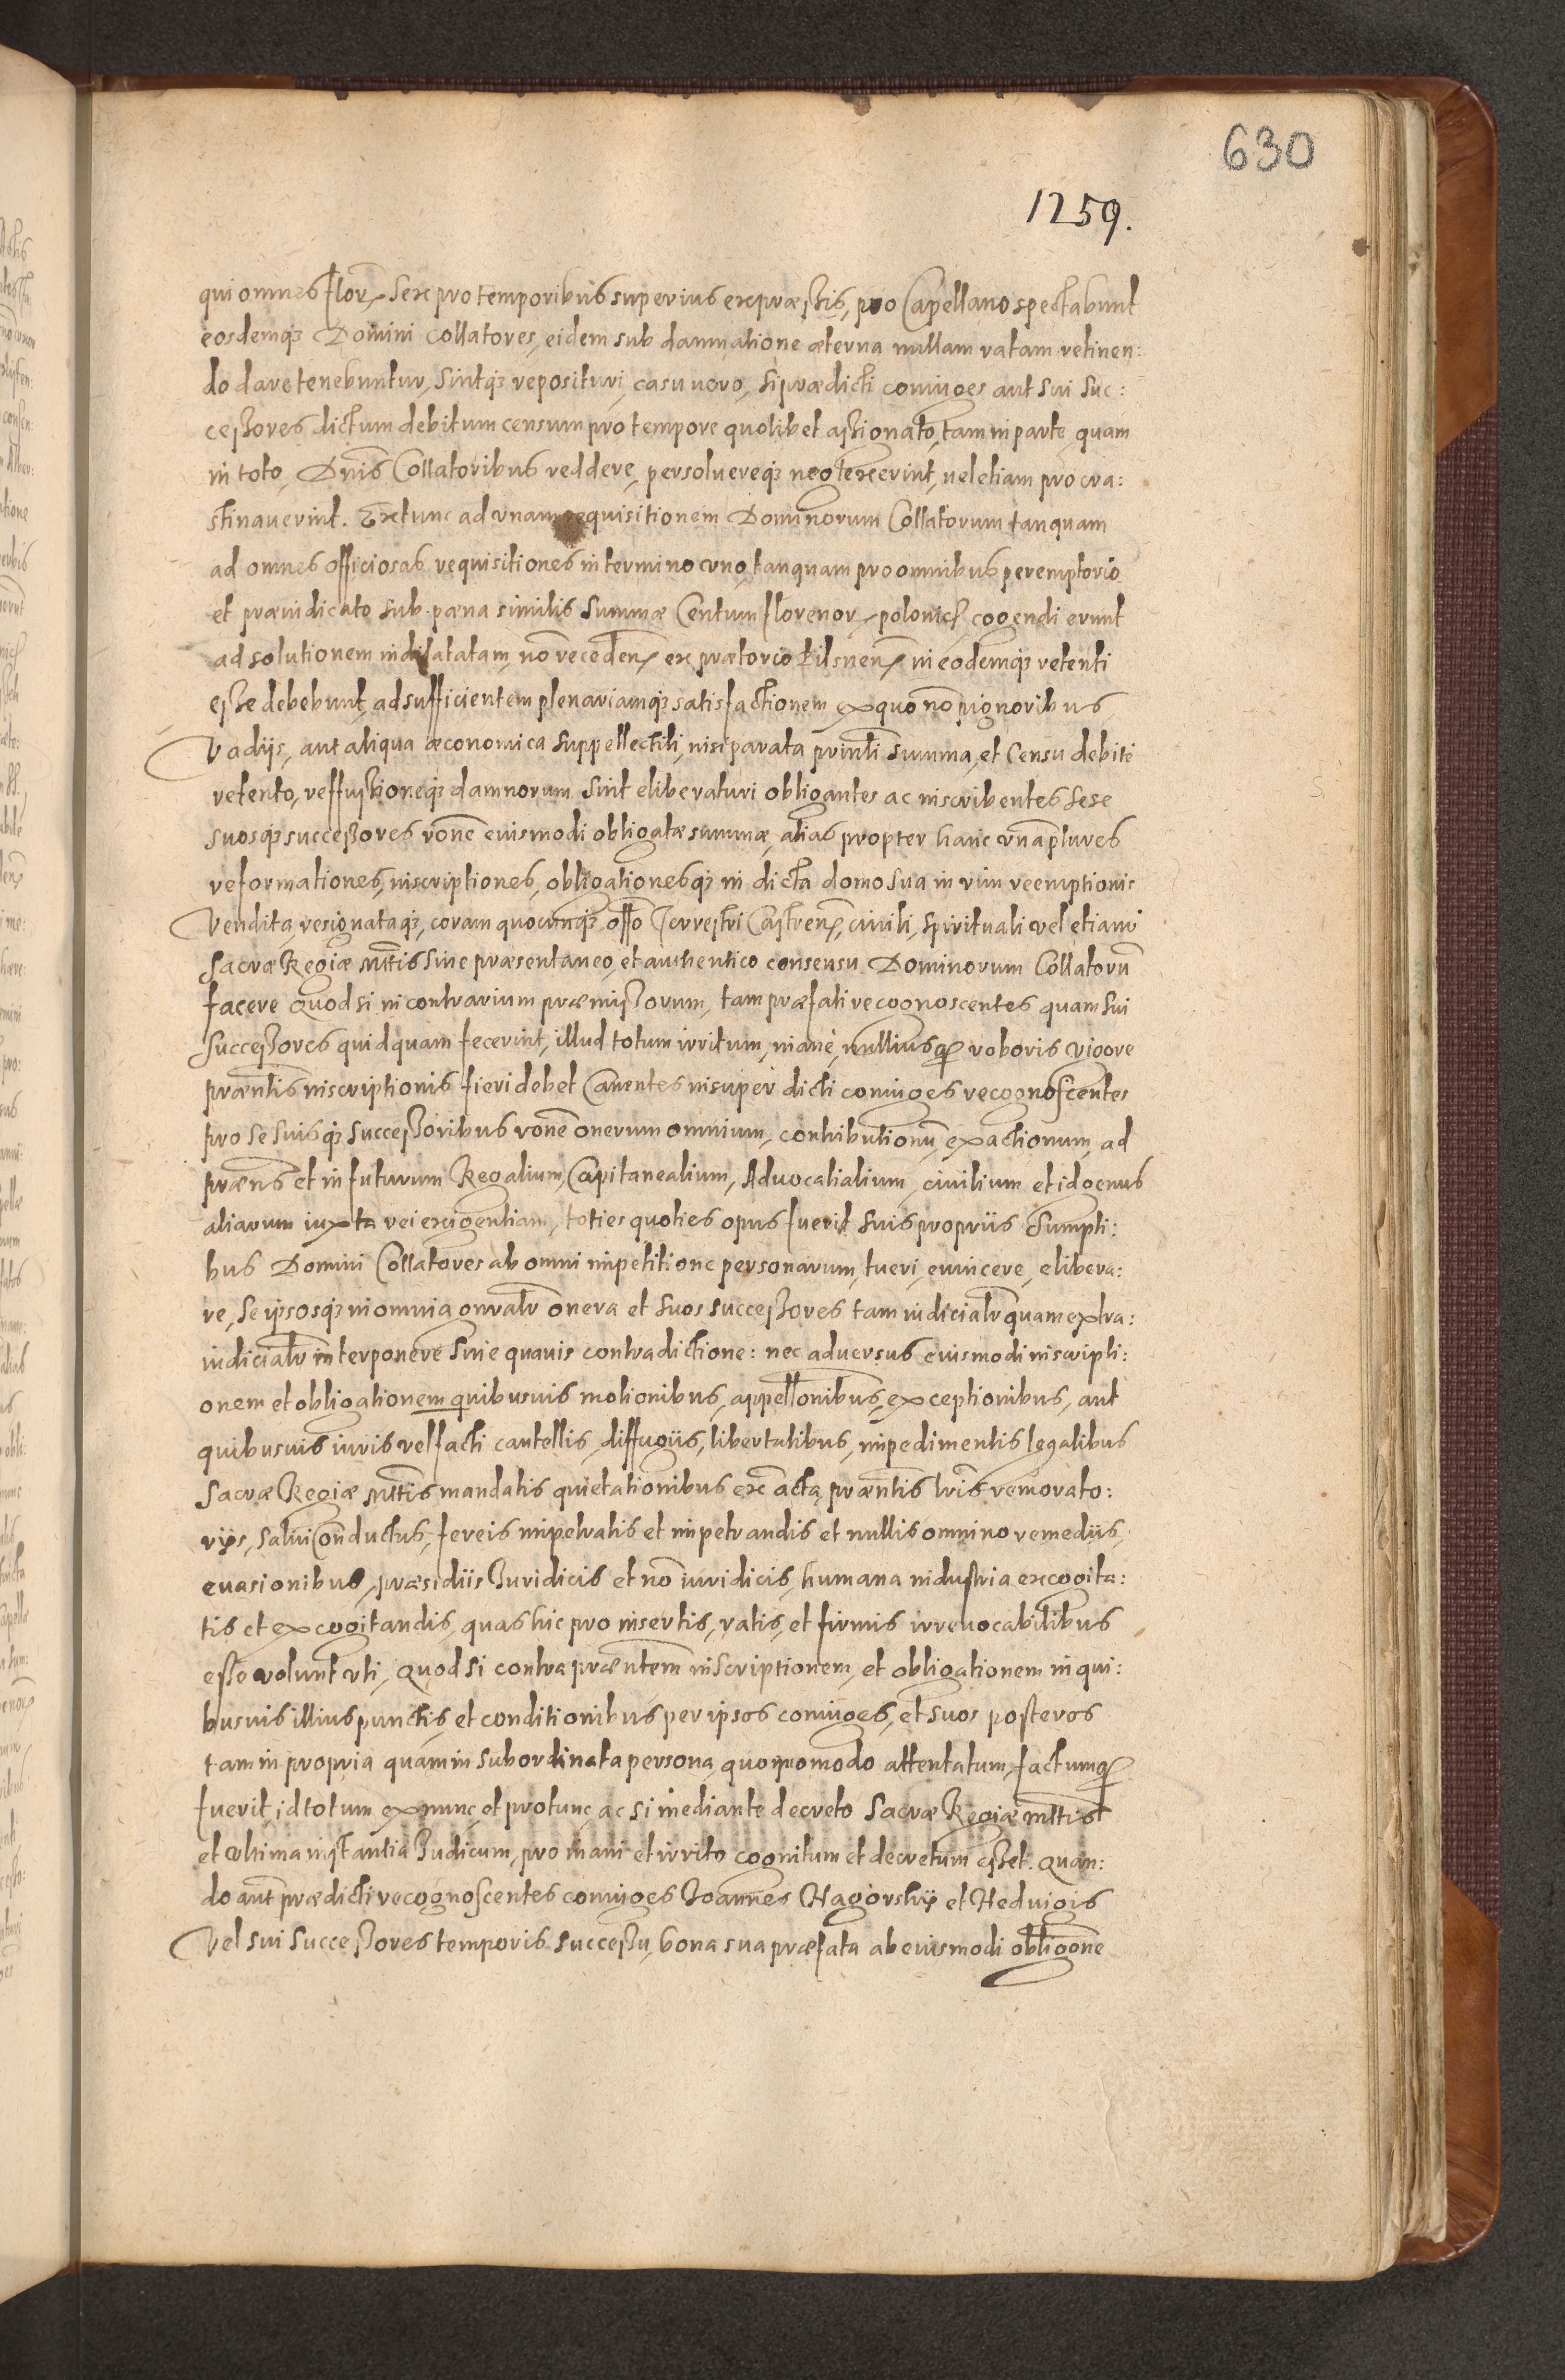 630
1259.
qui omnes flor. Sex pro temporibus superius expraeßis, pro Capellano spectabunt
eosdemq; Domini Collatores, eidem sub damnatione aeterna nullam ratam retinen:
do dare tenebuntur, sintq; reposituri, casu uero, si praedicti coniuges aut sui suc:
ceßores dictum debitum censum pro tempore quolibet aßionato, tam in parte quam
in toto, Dnis Collatoribus reddere, persoluereq; neglexerint, uel etiam procra:
stinauerint. Extunc ad vnam requisitionem Dominorum Collatorum tanquam
ad omnes officiosas requisitiones in termino vno, tanquam pro omnibus peremptorio
et praeiudicato sub paena similis summae Centum florenor. polonic. cogendi erunt
ad solutionem indilatatam, no recedens. ex praetorio Pilsnens. in eodemq; retenti
eße debebunt, ad sufficientem plenariamq; satisfactionem ex quo no pignoribus
Vadijs, aut aliqua aeconomica suppellectili, nisi parata printli summa, et Censu debiti
retento, reffußioneq; damnorum sint eliberaturi obligantes ac inscribentes sese
suosq; succeßores rone eiusmodi obligatae summae, alias propter hanc vna plures
reformationes, inscriptiones, obligationesq; in dicta domo sua in vim reemptionis
Vendita, resignataq;, coram quocunq; offo Terrestri Castrens. ciuili, spirituali vel etiam
Sacrae Regiae Mttis sine praesentaneo, et authentico consensu Dominorum Collatoru
facere quod si in contrarium praemißorum, tam praefati recognoscentes quam sui
succeßores quidquam fecerint, illud totum irritum, inane, nulliusq; roboris vigore
praentis inscriptionis fieri debet Cauentes insuper dicti coniuges recognoscentes
pro se suisq; succeßoribus rone onerum omnium, contributionu, exactionum, ad
praens et in futurum Regalium, Capitanealium, Aduocatialium, ciuilium et id genus
aliarum iuxta rei exigentiam, toties quoties opus fuerit suis propriis sumpti:
bus Domini Collatores ab omni impetitione personarum, tueri, euincere, elibera:
re, se ipsosq; in omnia gnralr onera et suos succeßores tam iudicialr quam extra:
iudicialr interponere sine quauis contradictione: nec aduersus eiusmodi inscripti:
onem et obligationem quibusuis motionibus, appellonibus, exceptionibus, aut
quibusuis iuris vel facti cautellis, diffugiis, libertatibus, impedimentis legalibus
Sacrae Regiae Mttis mandatis quietationibus ex acta, praentis lris remorato:
rijs, salui Conductus, fereis impetratis et impetrandis et nullis omnino remediis,
euasionibus, praesidiis Iuridicis et no iuridicis, humana industria excogita:
tis et excogitandis, quas hic pro insertis, ratis, et firmis irreuocabilibus
esse volunt vti, Quod si contra praentem inscriptionem, et obligationem in qui:
busuis illius punctis, et conditionibus per ipsos coniuges, et suos posteros
tam in propria quam in subordinata persona quopiomodo attentatum, factumq;
fuerit, id totum ex nunc, et pro tunc, ac si mediante decreto Sacrae Regiae Mttis
et vltima instantia Iudicum, pro inani et irrito cognitum et decretum eßet. Quan:
do aut praedicti recognoscentes coniuges Ioannes Nagorskij et Heduigis
Vel sui succeßores temporis succeßu, bona sua praefata ab eiusmodi obligone